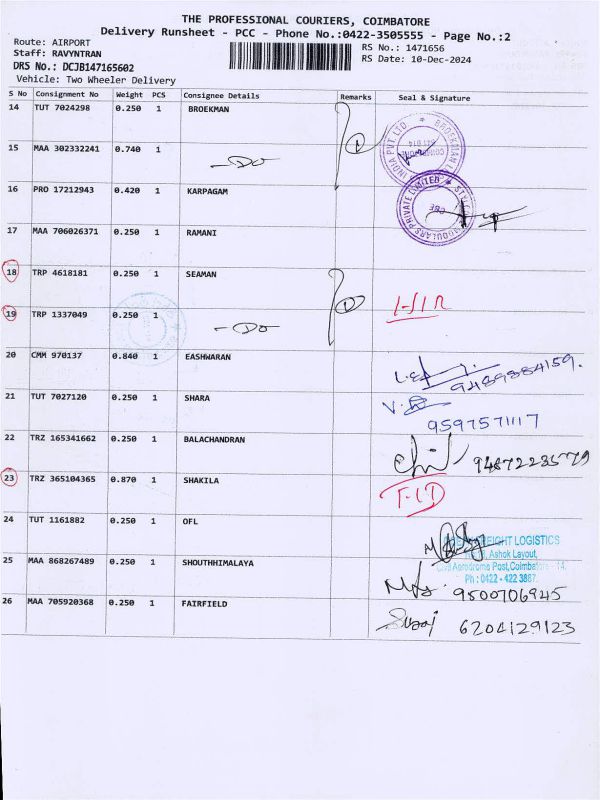 THE PROFESSIONAL COURIERS, COIMBATORE
Delivery Runsheet - PCC - Phone No.:0422-3505555 - Page No.:2
Route: AIRPORT
Staff: RAVYNTRAN
DRS No.: DCJB147165602
Vehicle: Two Wheeler Delivery
RS No.: 1471656
RS Date: 10-Dec-2024
S No Consignment No Weight PCS Consignee Details Remarks Seal & Signature
14 TUT 7024298 0.250 1 BROEKMAN
15 MAA 302332241 0.740 1 -Do
16 PRO 17212943 0.420 1 KARPAGAM
17 MAA 706026371 0.250 1 RAMANI
18 TRP 4618181 0.250 1 SEAMAN
19 TRP 1337049 0.250 1 -Do
20 CMM 970137 0.840 1 EASHWARAN 9489884159.
21 TUT 7027120 0.250 1 SHARA 9597571117
22 TRZ 165341662 0.250 1 BALACHANDRAN 9487223579
23 TRZ 365104365 0.870 1 SHAKILA
24 TUT 1161882 0.250 1 OFL
FREIGHT LOGISTICS
Ashok Layout,
Civil Aerodrome Post, Coimbatore - 14.
Ph : 0422 - 422 3887.
25 MAA 868267489 0.250 1 SHOUTHHIMALAYA 9500706945
26 MAA 705920368 0.250 1 FAIRFIELD Suraj 6204129123